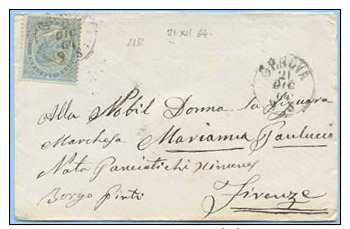 118
21 XII 64.
GENOVA
21
DIC
64
9 S
Alla Nobil Donna la Signora
Marchesa Marianna Paulucci
Nata Panciatichi Ximenes
Borgo Pinti
Firenze